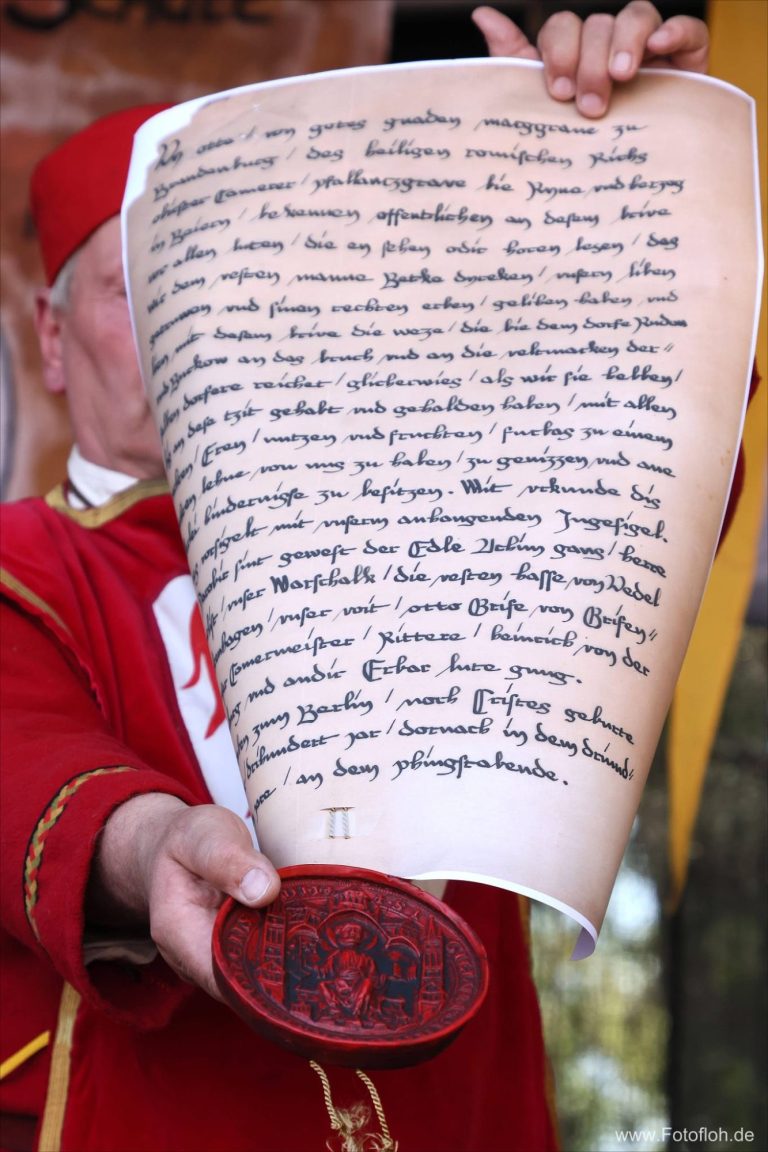 otto / von gotes gnaden marggrave zu
Brandenburg / des heiligen romischen Richs
obister Camerer / pfallantzgrave bie Ryne vnd herzog
in Baiern / bekennen offentlichen an desem brive
vor allen luten / die en sehen odir horen lesen / das
wir dem vesten manne Betke dyreken / vnsern liben
getruwen vnd sinen rechten erben / geliben haben vnd
mit desem brive die weze / die bie dem dorfe Rudow
vnd Buckow an das bruch vnd an die veltmarcken der
dorfere reichet / glicherwies / als wir sie helben /
an dese tzit gehabt vnd gehalden haben / mit allen
Eren / nutzen vnd fruchten / furbas zu einem
lehne von uns zu haben / zu genizzen vnd ane
hindernisse zu besitzen. Mit vrkunde dis
vorsigelt mit vnserm anhangenden Ingesigel.
sint gewest der Edle gang / herre
vnser Marschalk / die vesten hasse von Wedel
vnser voit / otto Grife von Grifen
Camermeister / Rittere / heinrich von der
vnd andir Erbar lute gnug.
zum Berlin / noch Cristes geburte
jar / dornach in dem
/ an dem phingstabende.
www.Fotofloh.de